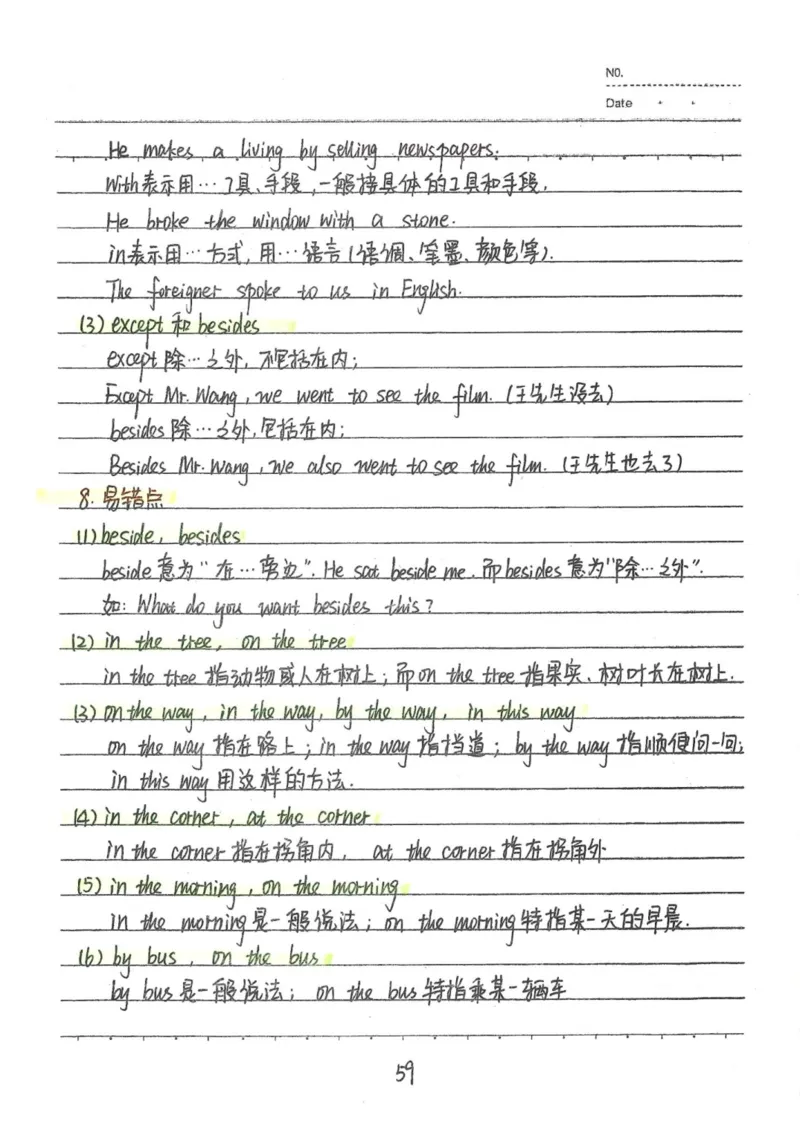 NO.
Date
He makes a living by selling newspapers.
With表示用…工具、手段,一般接具体的工具和手段.
He broke the window with a stone.
in表示用…方式,用…语言(语调、笔墨、颜色等).
The foreigner spoke to us in English.
(3) except 和 besides
except 除…之外,不包括在内;
Except Mr. Wang, we went to see the film. (王先生没去)
besides 除…之外,包括在内;
Besides Mr. Wang, we also went to see the film. (王先生也去了)
8. 易错点
(1) beside, besides
beside 意为“在…旁边”. He sat beside me. 而besides 意为“除…之外”.
如: What do you want besides this?
(2) in the tree, on the tree
in the tree 指动物或人在树上;而on the tree 指果实、树叶长在树上.
(3) on the way, in the way, by the way, in this way
on the way 指在路上;in the way 指挡道;by the way 指顺便问一问;
in this way 用这样的方法.
(4) in the corner, at the corner
in the corner 指在拐角内, at the corner 指在拐角外
(5) in the morning, on the morning
in the morning 是一般说法;on the morning 特指某一天的早晨.
(6) by bus, on the bus
by bus 是一般说法;on the bus 特指乘某一辆车
59